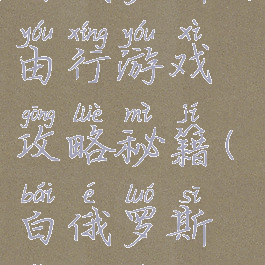 yóu xíng yóu xì
由行游戏
gōng lüè mì jí
攻略秘籍(
bái é luó sī
白俄罗斯